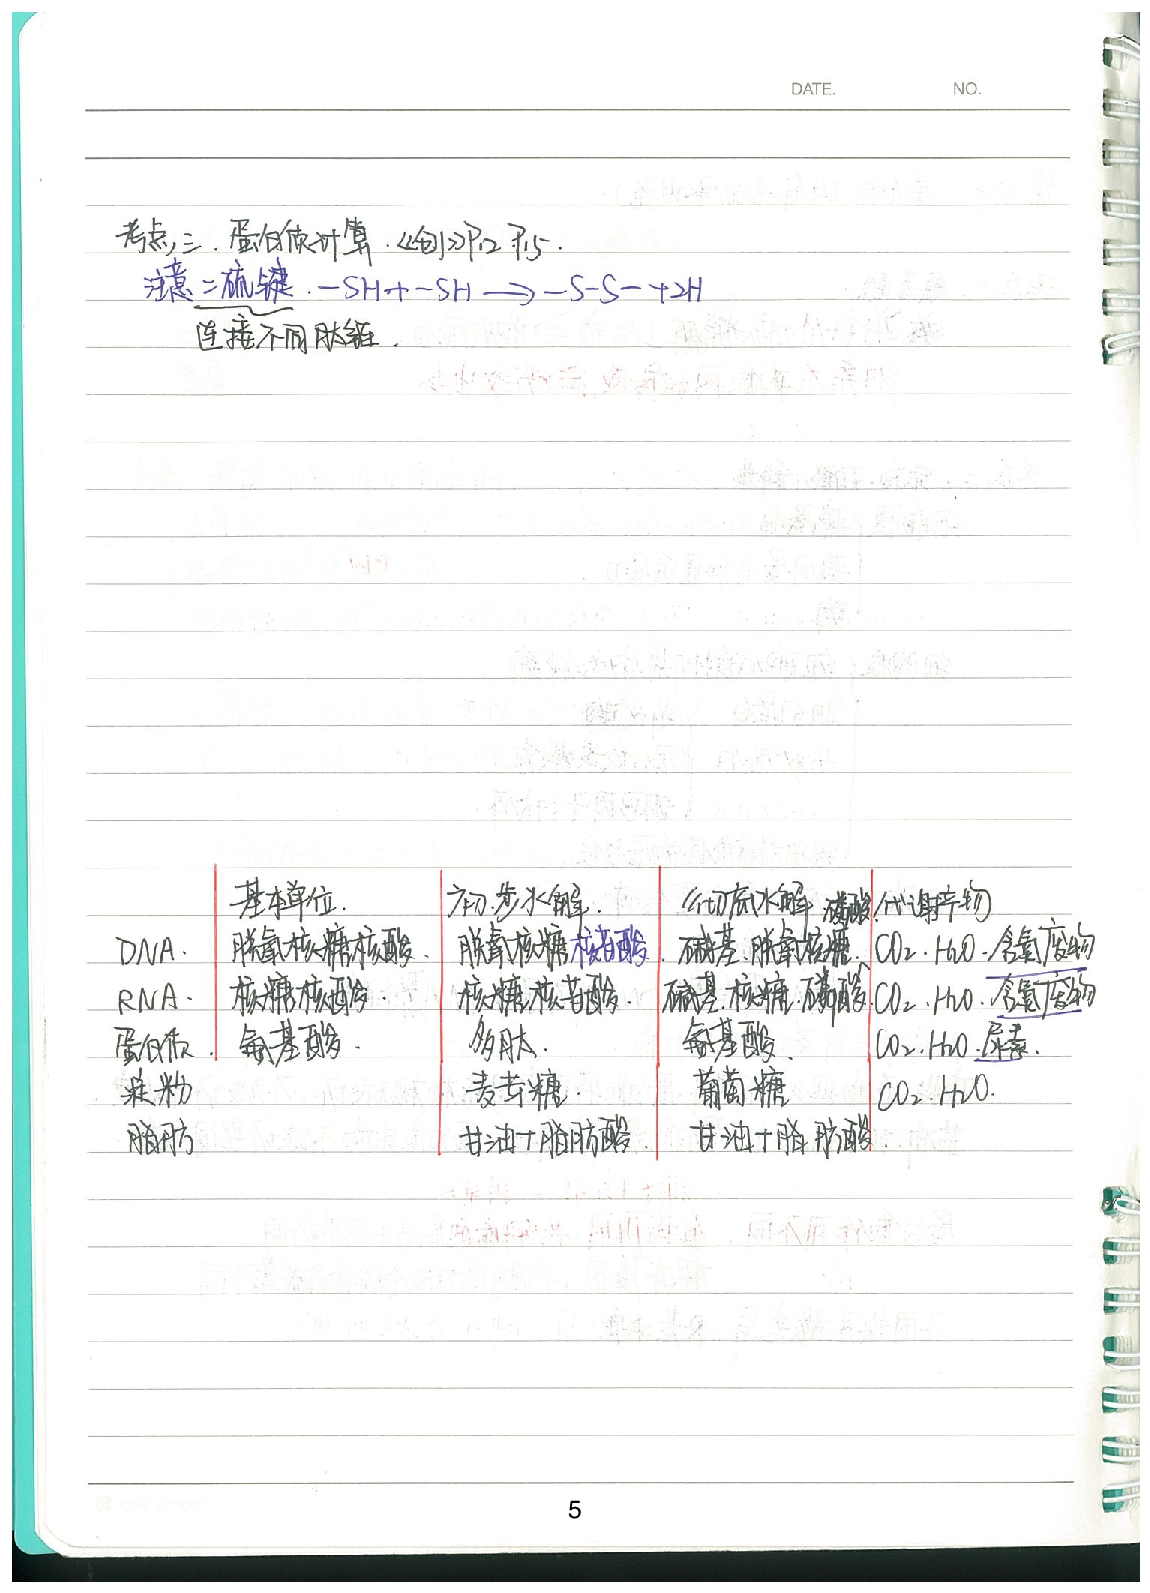 DATE. NO.
考点三. 蛋白质计算.《创》P12 P15.
注意二硫键. -SH+-SH→-S-S-+2H
连接不同肽链.
基本单位. 初步水解. 彻底水解 代谢产物
DNA. 脱氧核糖核酸. 脱氧核糖核苷酸. 碱基.脱氧核糖.磷酸 CO2.H2O.含氮废物
RNA. 核糖核酸. 核糖核苷酸. 碱基.核糖.磷酸. CO2.H2O.含氮废物
蛋白质. 氨基酸. 多肽. 氨基酸. CO2.H2O.尿素.
淀粉 麦芽糖. 葡萄糖 CO2.H2O.
脂肪 甘油+脂肪酸. 甘油+脂肪酸
5